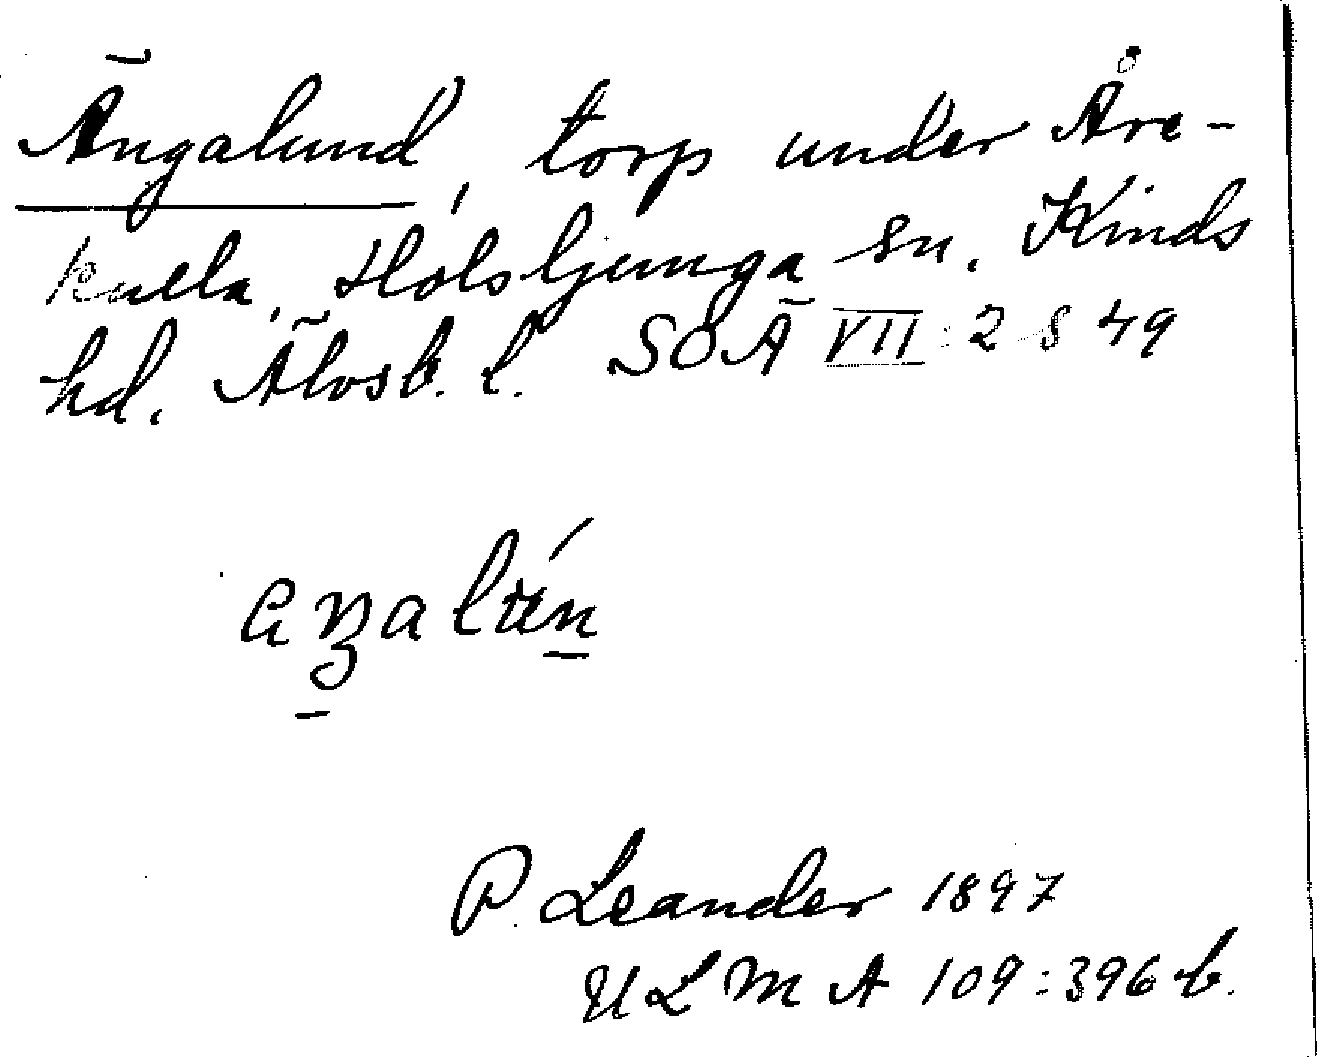 Ängalund, torp under Åre-
kulla, Holsljunga sn. Kinds
hd. Älvsb. l. SOÄ VII:2 s 49
P. Leander 1897
ULMA 109:396 b.